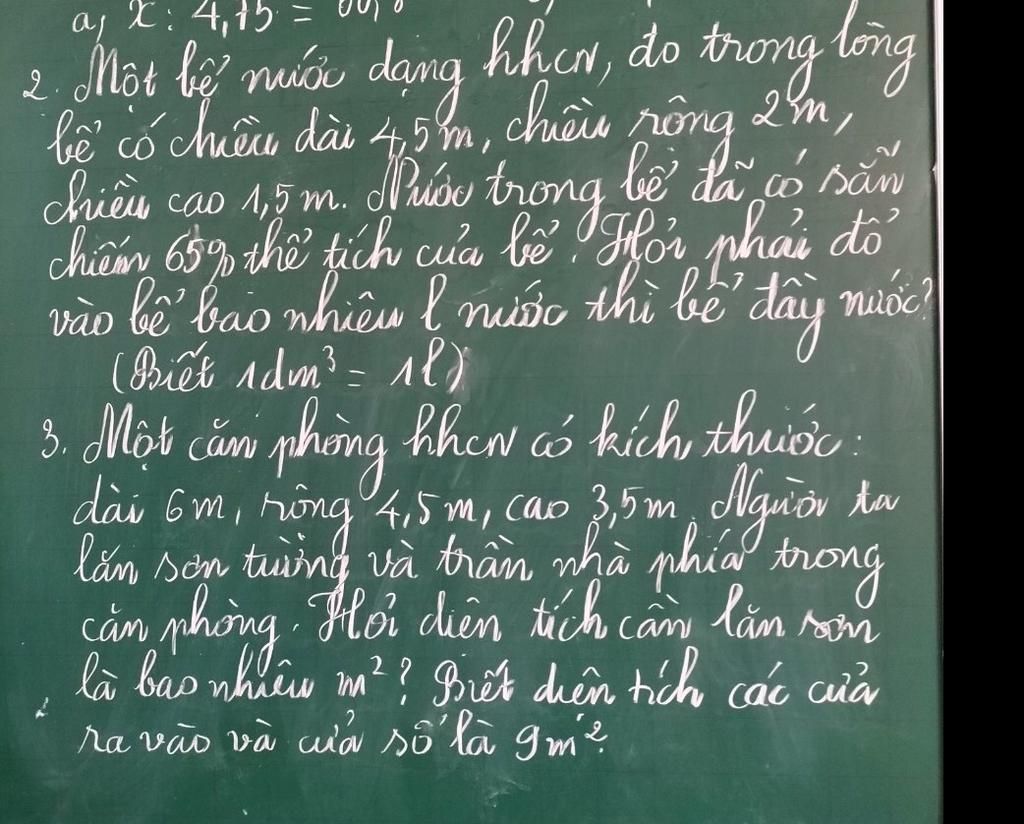 a, x : 4,75 =
2. Một bể nước dạng hhcn, đo trong lòng
bể có chiều dài 4,5m, chiều rộng 2m,
chiều cao 1,5m. Nước trong bể đã có sẵn
chiếm 65% thể tích của bể. Hỏi phải đổ
vào bể bao nhiêu l nước thì bể đầy nước?
(Biết 1dm³ = 1l)
3. Một căn phòng hhcn có kích thước:
dài 6m, rộng 4,5m, cao 3,5m. Người ta
lăn sơn tường và trần nhà phía trong
căn phòng. Hỏi diện tích cần lăn sơn
là bao nhiêu m²? Biết diện tích các cửa
ra vào và cửa sổ là 9m².